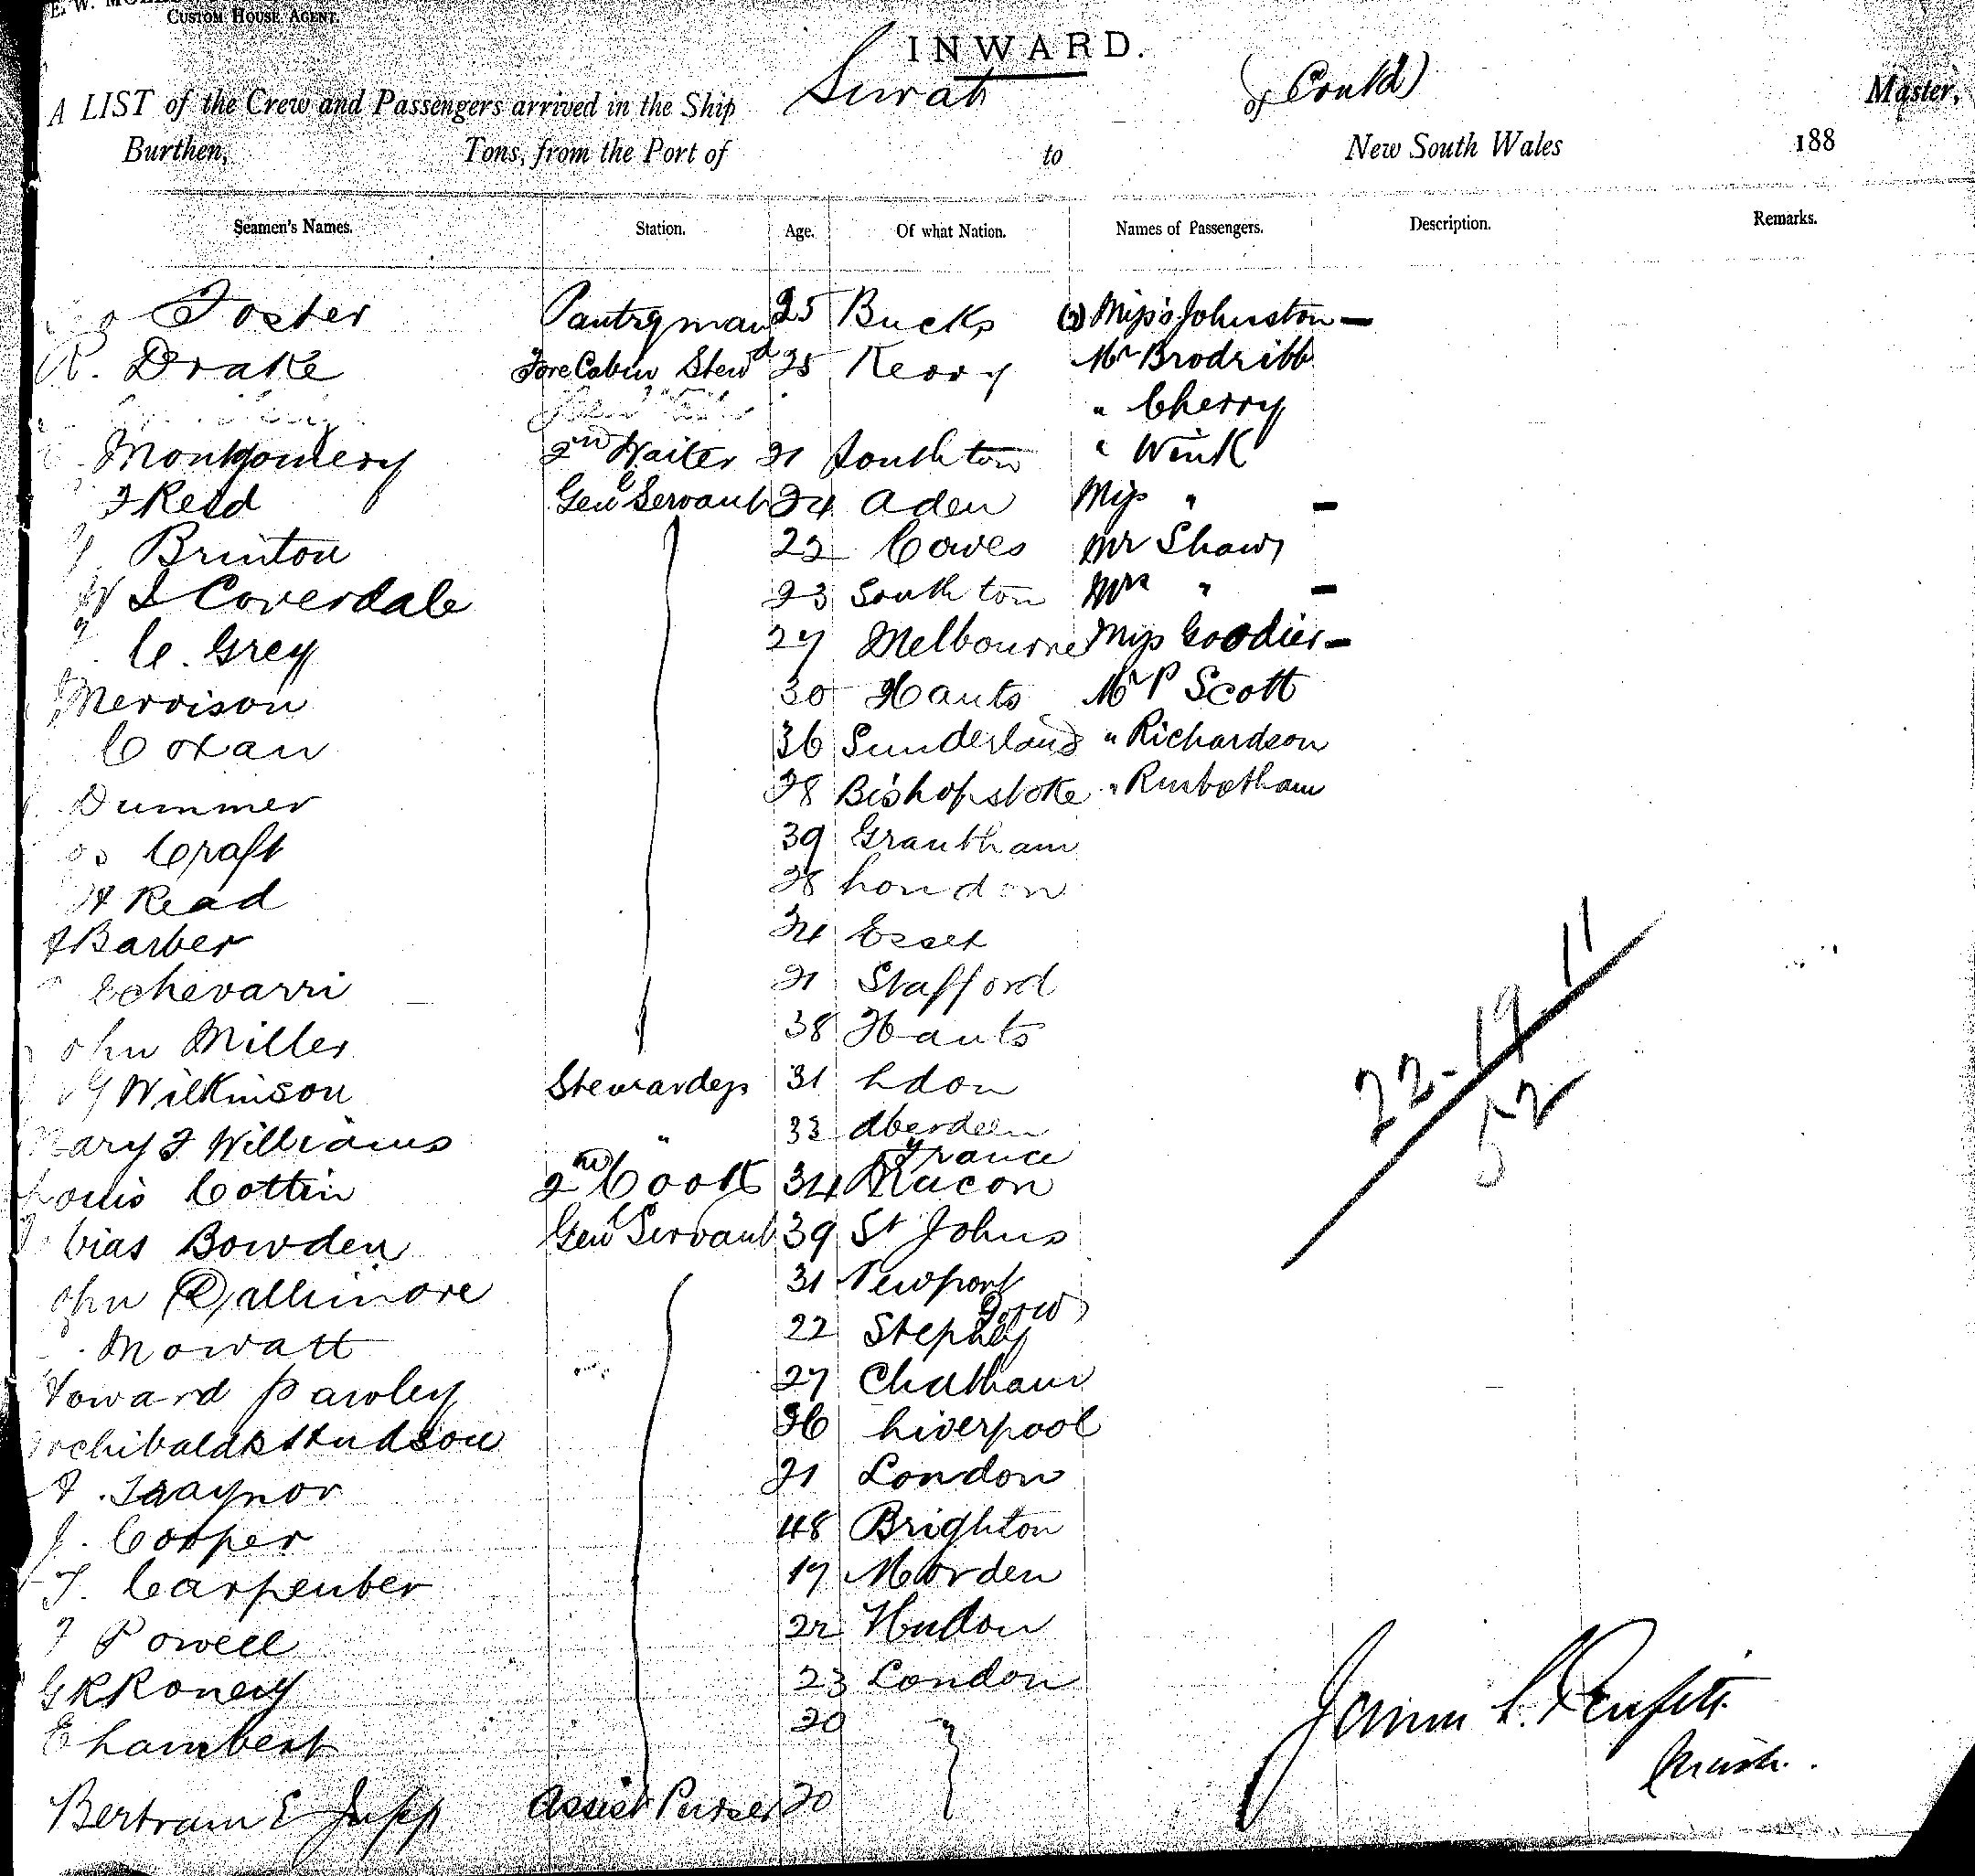 CUSTOM HOUSE AGENT.
INWARD.
A LIST of the Crew and Passengers arrived in the Ship Surat (Contd) of Master,
Burthen, Tons, from the Port of to New South Wales 188
Seamen's Names. Station. Age. Of what Nation. Names of Passengers. Description. Remarks.
Foster Pantryman 25 Bucks (2) Miss's Johnston —
R. Drake Fore Cabin Stewd 25 Kerry Mr Brodribb
" Cherry
Montgomery 2nd Waiter 21 Southton " Wink
F Reid Genl Servant 24 Aden Miss " —
Brinton 22 Cowes Mr Shaw
W S Coverdale 23 Southton Mrs " —
C. Grey 27 Melbourne Miss Goodier —
Merrison 30 Hants Mr P Scott
Coxan 36 Sunderland " Richardson
Dummer 28 Bishopstoke "
Craft 39 Grantham
H Read 28 London
Barber 24 Essex
Echevarri 21 Stafford
ohn Miller 38 Hants
Wilkinson Stewardess 31 Ldon
Mary F Williams " 33 Aberdeen
Louis Cottin 2nd Cook 34 Macon France
Bowden Genl Servant 39 St Johns
ohn Dallimore 31 Newport
Mowatt 22 Stepney
Howard Pawley 27 Chatham
rchibald Hudson 26 Liverpool
Traynor 21 London
J. Cooper 48 Brighton
T. Carpenter 19 Morden
Powell 22
G R Roney 23 London
E Lambert 20 "
Bertram E Jupp Assist Purser 20
22-19-11
52